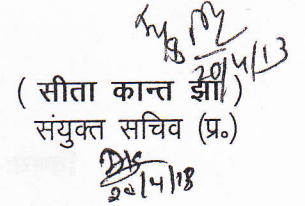 20/4/13
( सीता कान्त झा )
संयुक्त सचिव (प्र०)
20/4/18